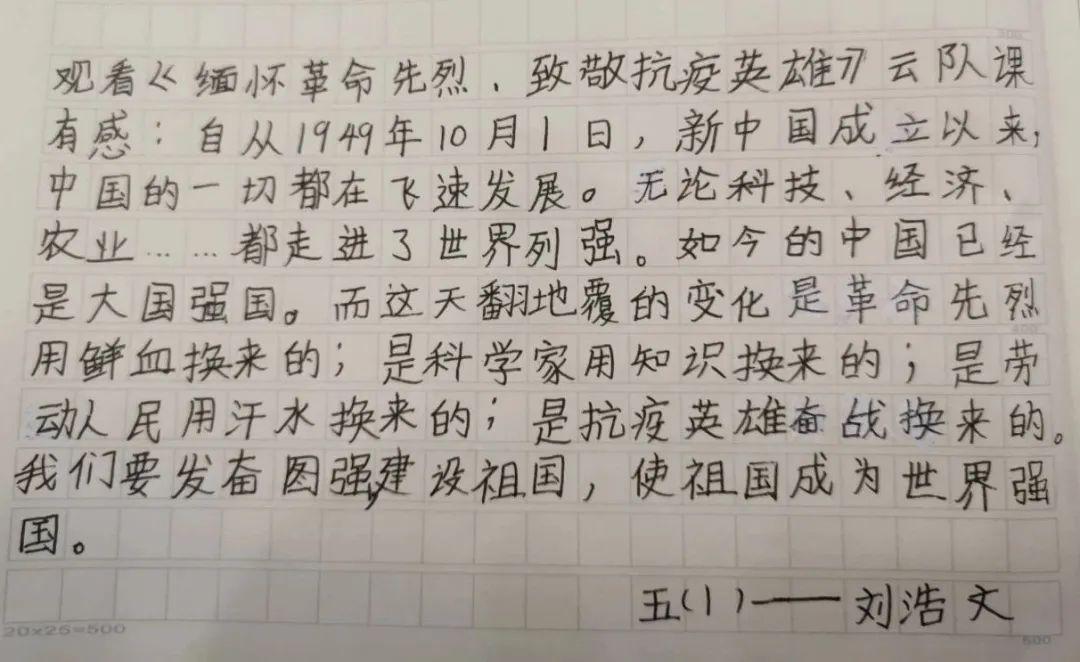 观看《缅怀革命先烈、致敬抗疫英雄》云队课
有感：自从1949年10月1日，新中国成立以来，
中国的一切都在飞速发展。无论科技、经济、
农业……都走进了世界列强。如今的中国已经
是大国强国。而这天翻地覆的变化是革命先烈
用鲜血换来的；是科学家用知识换来的；是劳
动人民用汗水换来的；是抗疫英雄奋战换来的。
我们要发奋图强,建设祖国，使祖国成为世界强
国。
五(1)——刘浩文
20×25=500
300
400
500